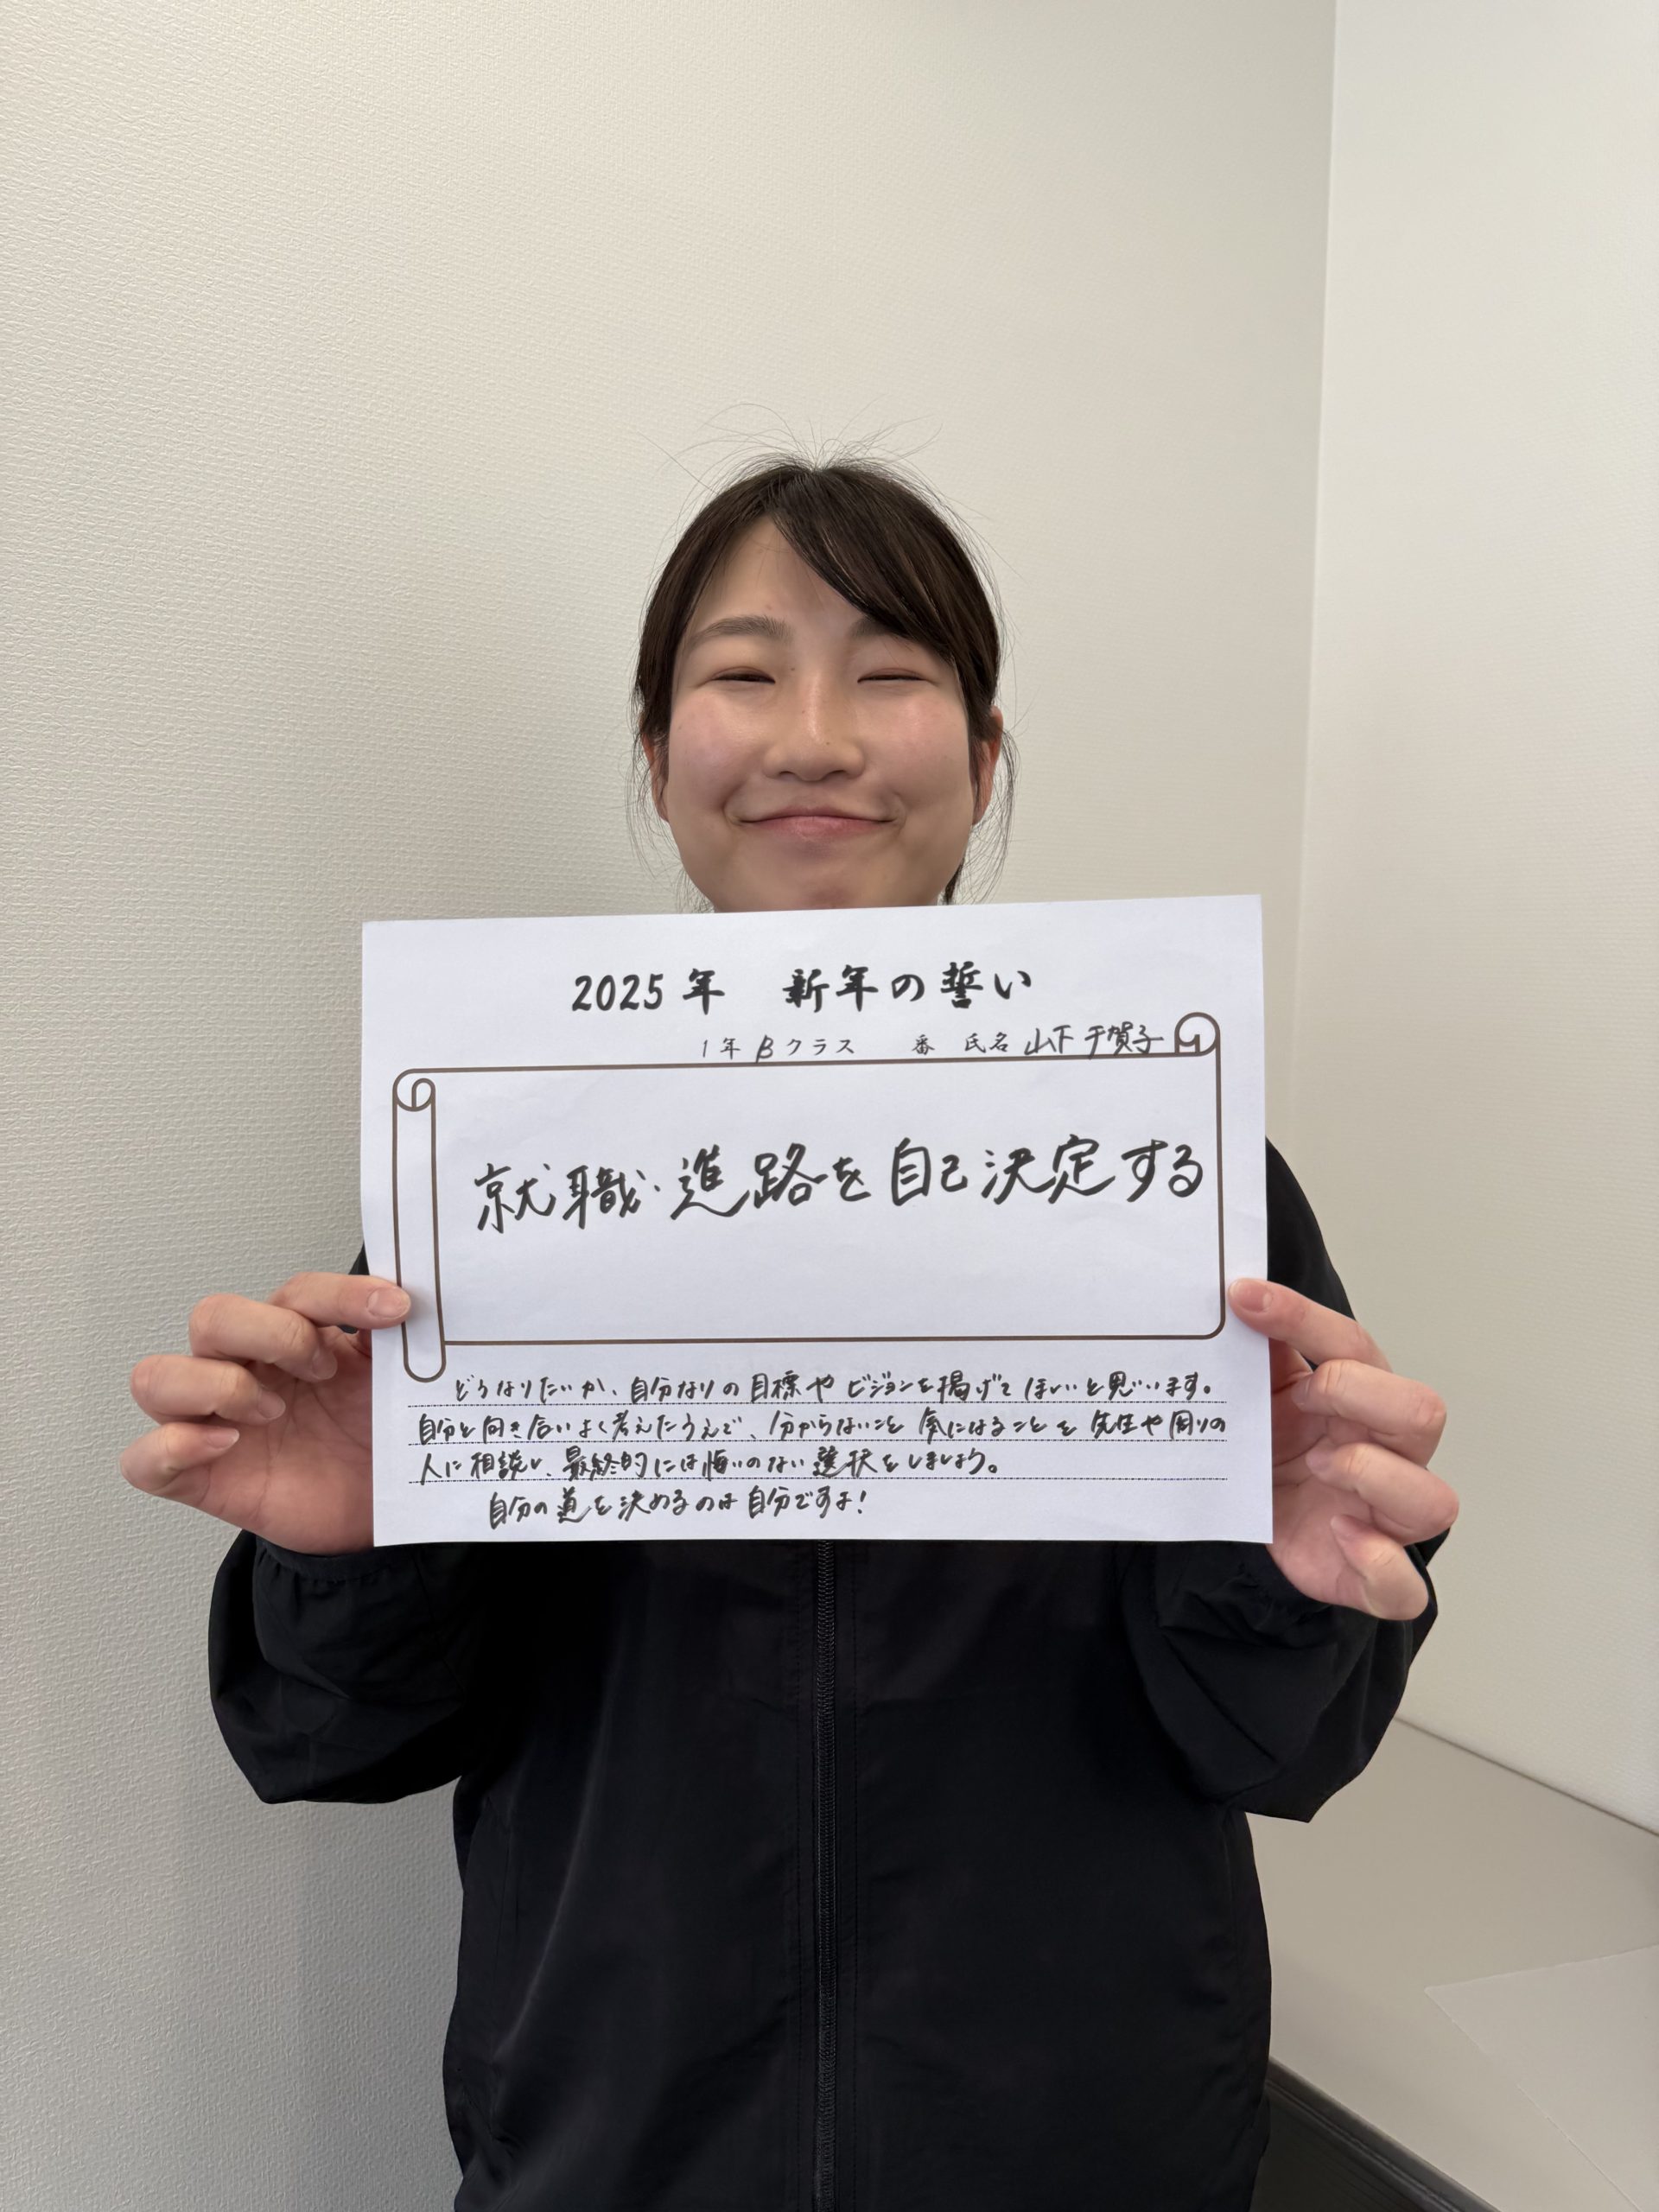 2025年 新年の誓い
1年Bクラス 番 氏名 山下 千賀子
就職・進路を自己決定する
どうなりたいか、自分なりの目標やビジョンを掲げてほしいと思います。
自分と向き合いよく考えたうえで、分からないこと気になることを先生や周りの
人に相談し、最終的には悔いのない選択をしましょう。
自分の道を決めるのは自分ですよ!